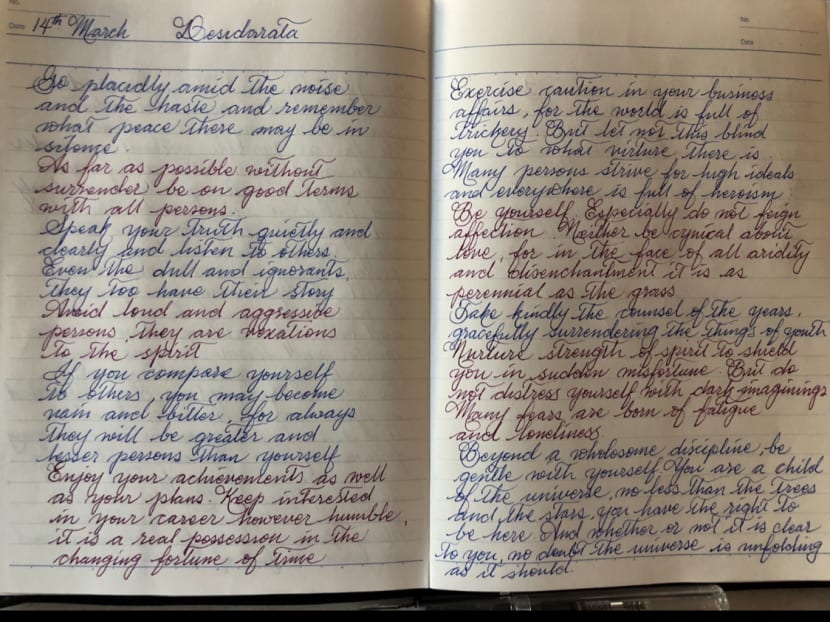 No.
Date 14th March Desidarata
Go placidly amid the noise
and the haste and remember
what peace there may be in
silence.
As far as possible without
surrender be on good terms
with all persons.
Speak your truth quietly and
clearly and listen to others,
Even the dull and ignorants,
they too have their story
Avoid loud and aggressive
persons, they are vexations
to the spirit
If you compare yourself
to others, you may become
vain and bitter, for always
they will be greater and
lesser persons than yourself
Enjoy your achievements as well
as your plans. Keep interested
in your career however humble,
it is a real possession in the
changing fortune of time
No.
Date
Exercise caution in your business
affairs, for the world is full of
trickery. But let not this blind
you to what virture there is.
Many persons strive for high ideals
and everywhere is full of heroism.
Be yourself. Especially do not feign
affection. Neither be cynical about
love, for in the face of all aridity
and disenchantment it is as
perennial as the grass.
Take kindly the counsel of the years,
gracefully surrendering the things of youth
Nurture strength of spirit to shield
you in sudden misfortune. But do
not distress yourself with dark imaginings
Many fears are born of fatigue
and loneliness
Beyond a wholesome discipline, be
gentle with yourself. You are a child
of the universe, no less than the trees
and the stars, you have the right to
be here. And whether or not it is clear
to you, no doubt the universe is unfolding
as it should.